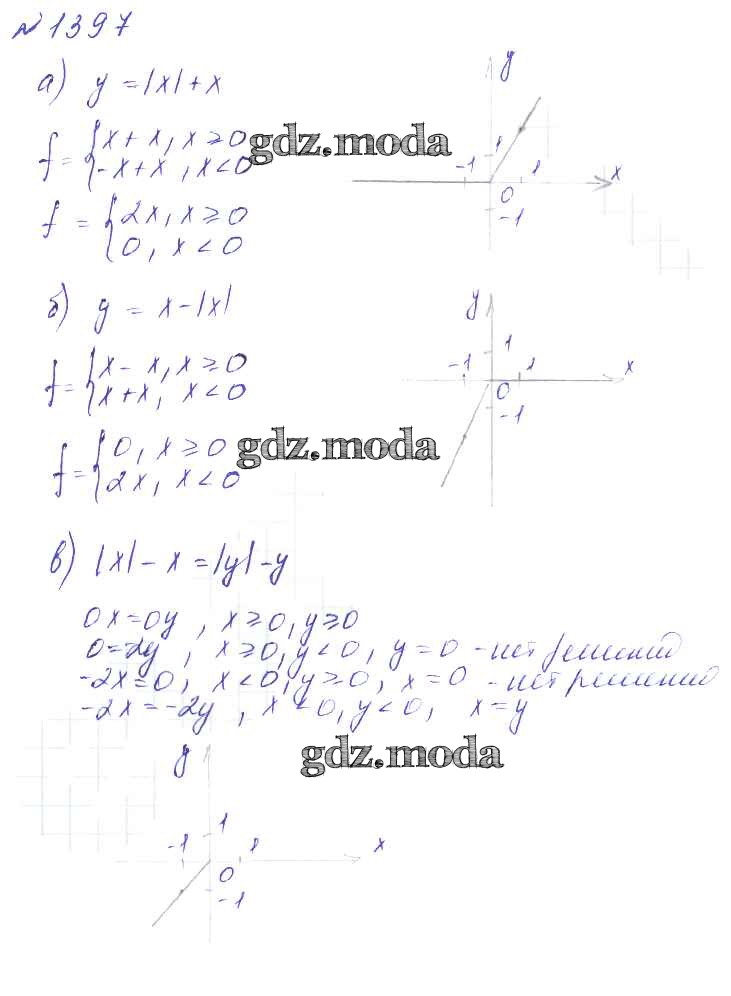 №1397
а) y = |x| + x
y
f = { x + x, x ≥ 0
-x + x, x < 0
gdz.moda
1
-1 1 x
0
-1
f = { 2x, x ≥ 0
0, x < 0
б) y = x - |x|
y
f = { x - x, x ≥ 0
x + x, x < 0
1
-1 1 x
0
-1
f = { 0, x ≥ 0
2x, x < 0
gdz.moda
в) |x| - x = |y| - y
0x = 0y, x ≥ 0, y ≥ 0
0 = -2y, x ≥ 0, y < 0, y = 0 - нет решений
-2x = 0, x < 0, y ≥ 0, x = 0 - нет решений
-2x = -2y, x < 0, y < 0, x = y
gdz.moda
y
1
-1 1 x
0
-1